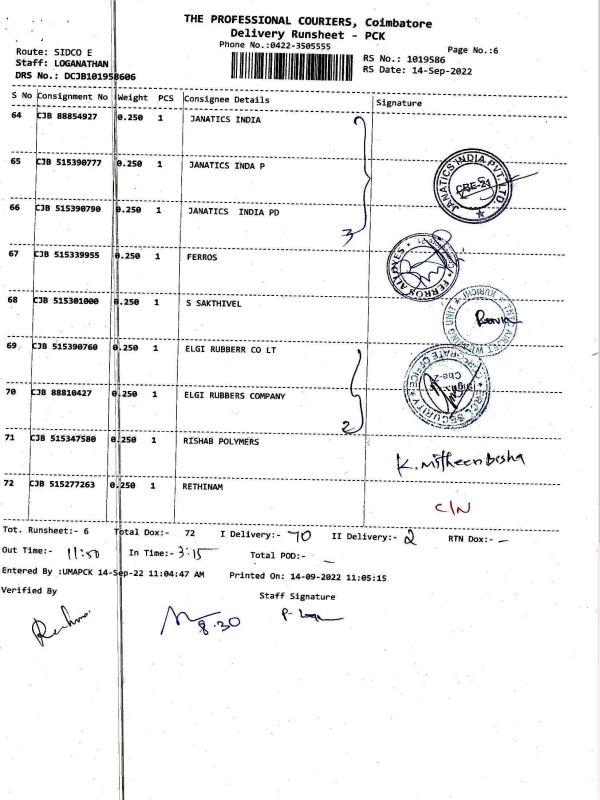 THE PROFESSIONAL COURIERS, Coimbatore
Delivery Runsheet - PCK
Phone No.:0422-3505555
Page No.:6
Route: SIDCO E
RS No.: 1019586
Staff: LOGANATHAN
RS Date: 14-Sep-2022
DRS No.: DCJB101958606
S No Consignment No Weight PCS Consignee Details Signature
64 CJB 88854927 0.250 1 JANATICS INDIA
65 CJB 515390777 0.250 1 JANATICS INDA P
JANATICS INDIA PVT. LTD
CBE-21
66 CJB 515390790 0.250 1 JANATICS INDIA PD
3
67 CJB 515339955 0.250 1 FERROS
FERROS ALLOYES
68 CJB 515301000 0.250 1 S SAKTHIVEL
KURICHI
69 CJB 515390760 0.250 1 ELGI RUBBERR CO LT
70 CJB 88810427 0.250 1 ELGI RUBBERS COMPANY
2
71 CJB 515347580 0.250 1 RISHAB POLYMERS
72 CJB 515277263 0.250 1 RETHINAM
C/N
Tot. Runsheet:- 6 Total Dox:- 72 I Delivery:- 70 II Delivery:- 2 RTN Dox:- -
Out Time:- 11:50 In Time:- 3:15 Total POD:- -
Entered By :UMAPCK 14-Sep-22 11:04:47 AM Printed On: 14-09-2022 11:05:15
Verified By Staff Signature
8.30